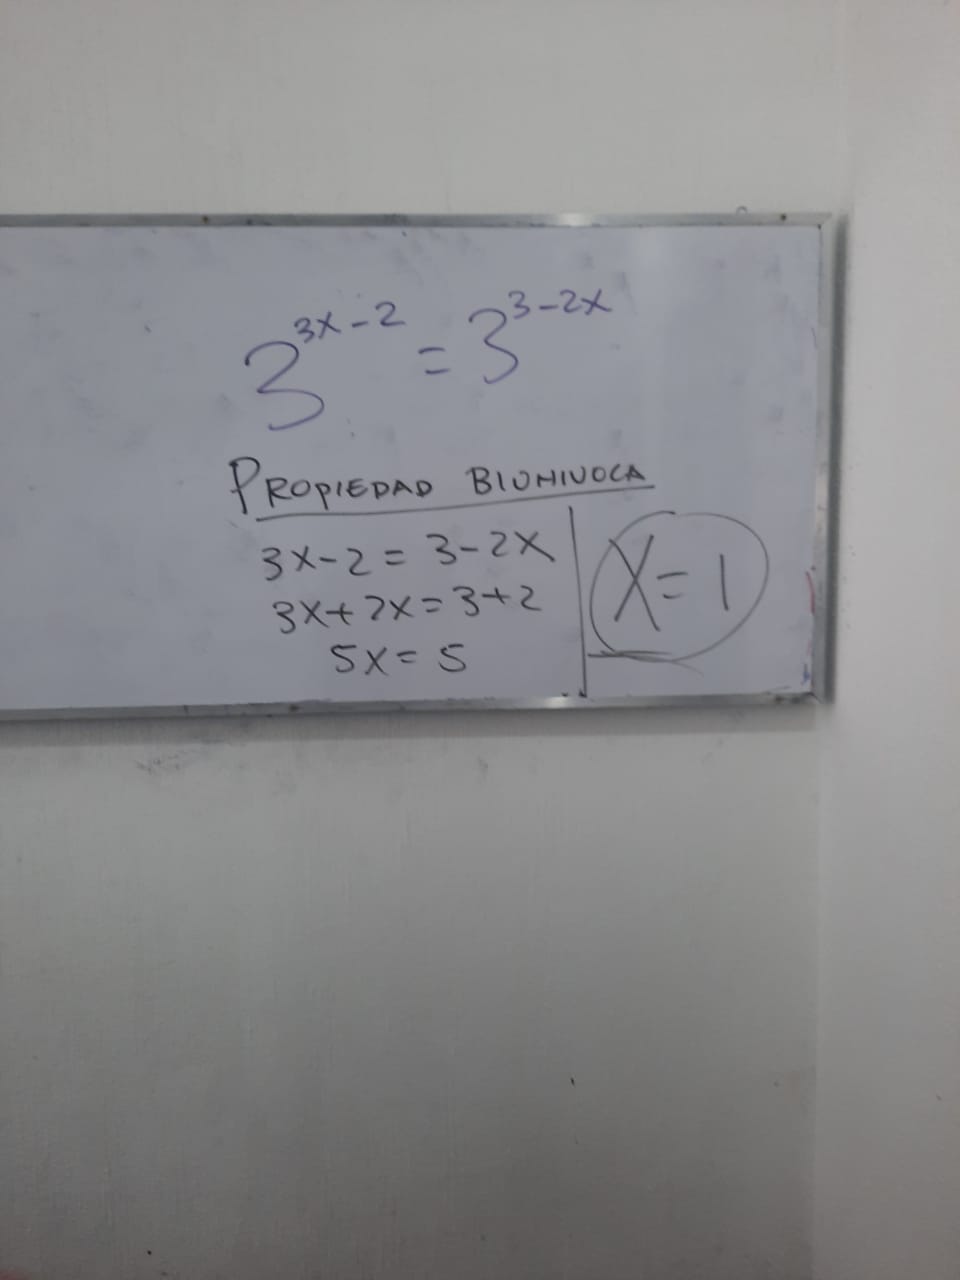 3^{3x-2} = 3^{3-2x}
PROPIEDAD BIUNIVOCA
3x-2 = 3-2x
3x+2x = 3+2
5x = 5
x = 1